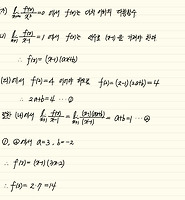 가) lim x→∞ f(x)/x³ = 0 에서 f(x)는 이차 이하의 다항함수
나) lim x→1 f(x)/(x-1) = 1 에서 f(x)는 (x-1)을 가져야 한다
∴ f(x) = (x-1)(ax+b)
(다)에서 f(2) = 4 이므로 f(2) = (2-1)(2a+b) = 4
∴ 2a+b = 4 … ①
또한 (나)에서 lim x→1 f(x)/(x-1) = lim x→1 (x-1)(ax+b)/(x-1) = a+b = 1 … ②
①, ②에서 a = 3, b = -2
∴ f(x) = (x-1)(3x-2)
∴ f(3) = 2·7 = 14